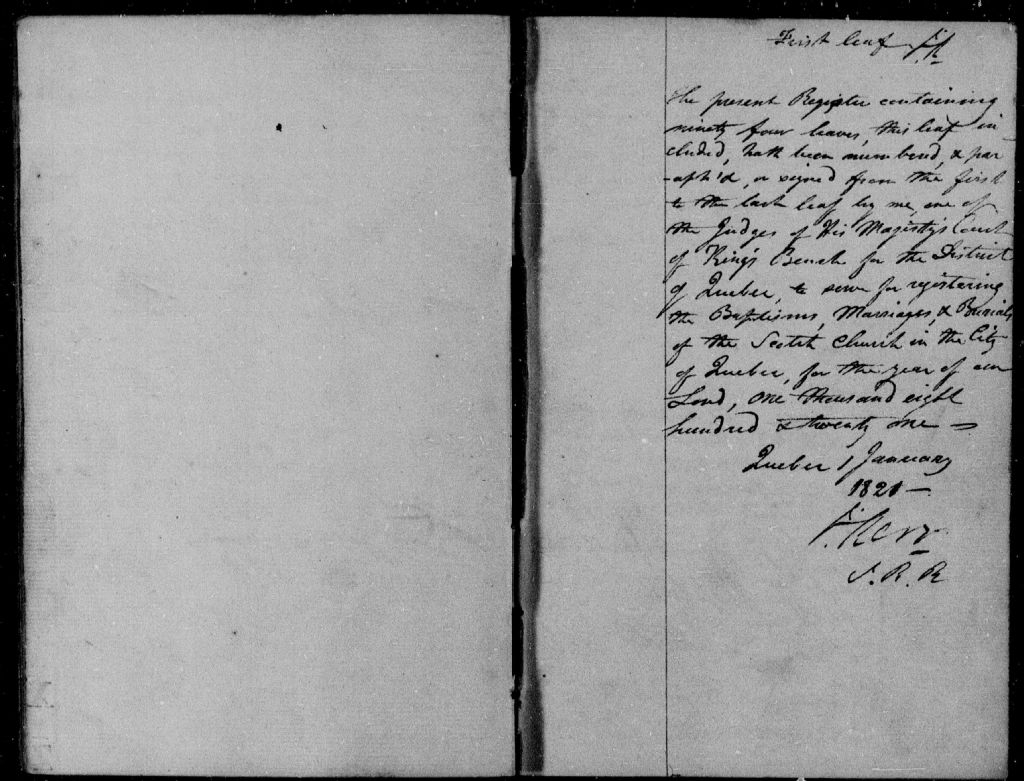 First leaf J.K
The present Register containing
ninety four leaves, this leaf in
cluded, hath been numbered, & par
-aph'd, or signed from the first
to the last leaf by me, one of
the Judges of His Majesty's Court
of King's Bench for the District
of Quebec, to serve for registering
the Baptisms, Marriages, & Burials
of the Scotch Church in the City
of Quebec, for the year of our
Lord, One thousand eight
hundred & twenty one —
Quebec 1 January
1821 —
J. Kerr
J. K. B